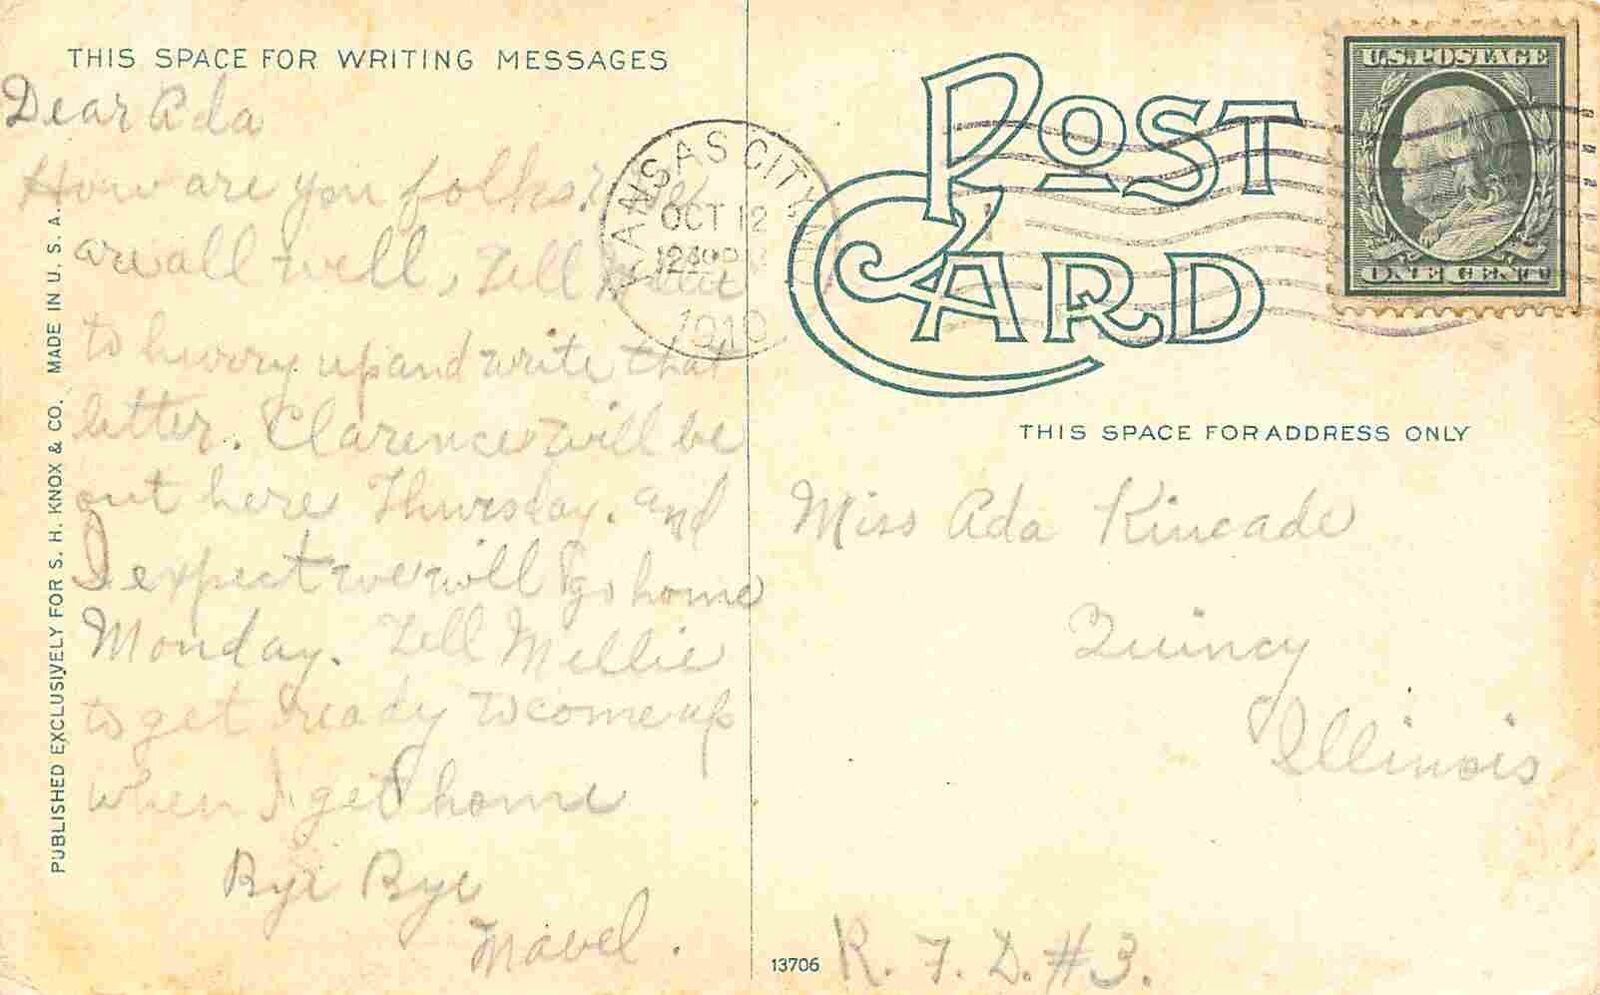 THIS SPACE FOR WRITING MESSAGES
Dear Ada
How are you folks? We
are all well, Tell
to hurry up and write that
letter. Clarence will be
out here Thursday. and
I expect we will go home
Monday. Tell Mellie
to get ready to come up
when I get home
Bye Bye
Mavel.
PUBLISHED EXCLUSIVELY FOR S. H. KNOX & CO. MADE IN U. S. A.
KANSAS CITY
OCT 12
1910
POST
CARD
U.S. POSTAGE
ONE CENT
THIS SPACE FOR ADDRESS ONLY
Miss Ada Kincade
Quincy
Illinois
R. F. D. #3.
13706